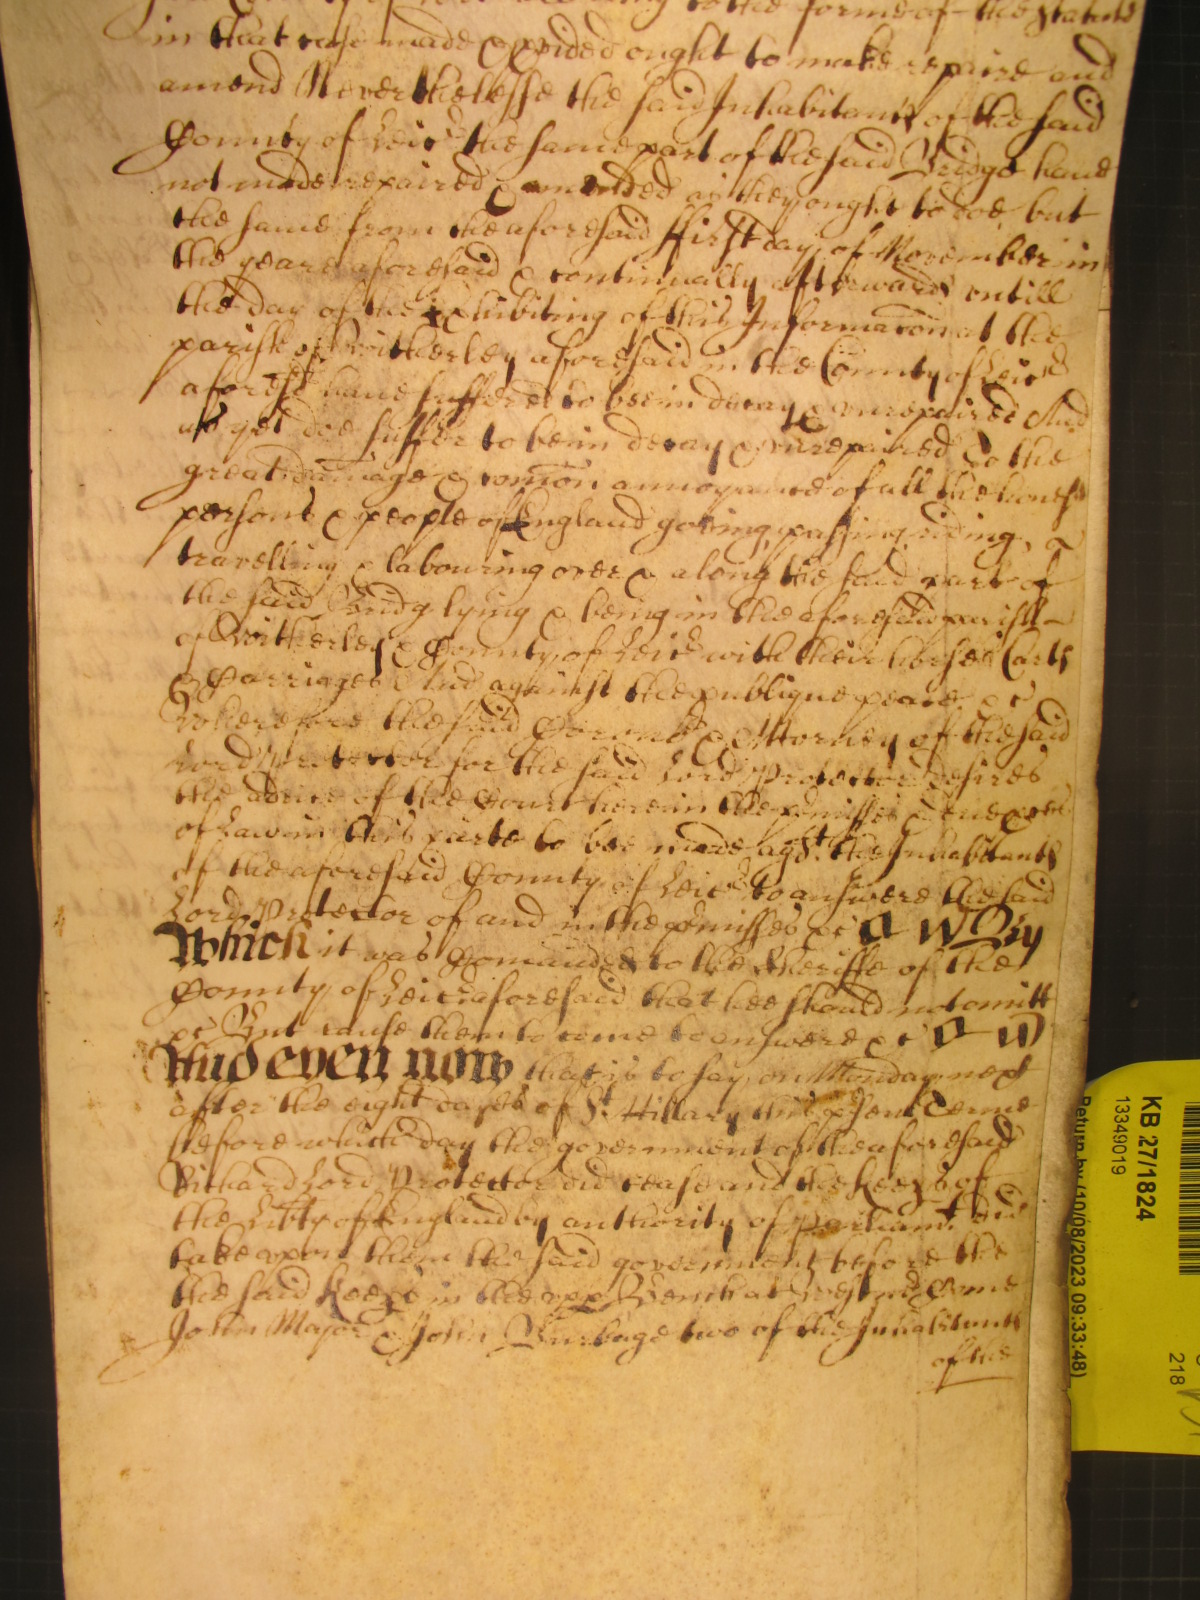 to the forme of the Statute
in that case made & pvided ought to make repaire and
amend Neverthelesse the said Inhabitants of the said
County of Leicr the same part of the said Bridge have
not made repaired & amended as they ought to doe but
the same from the aforesaid first day of November in
the yeare aforesaid & continually afterwards untill
the day of the exhibiting of this Informacon at the
parish of Witherley aforesaid in the County of Leicr
aforesd have suffered to bee in decay & unrepaired And
as yet doe suffer to be in decay & unrepaired To the
great damage & comon annoyance of all the honest
persons & people of England goeing passing riding
travelling & labouring over & along the said part of
the said Bridg lying & being in the aforesaid parish
of Witherley & County of Leicr with their horses Carts
& Carriages And against the publique peace &c
Wherefore the said Coronr & Attorney of the said
Lord Protector for the said Lord Protector desires
the advice of the Court here in the pmisses & due pces
of Law in this parte to bee made agst the Inhabitants
of the aforesaid County of Leicr to answere the said
Lord Protector of and in the pmisses &c By
Which it was Comanded to the Sheriffe of the
County of Leicr aforesaid that hee should not omitt
&c But cause them to come to answere &c
And even now that is to say on Monday next
after the eight dayes of St Hillary this psent Terme
before which day the government of the aforesaid
Richard Lord Protector did cease and the Keeps of
the Libty of England by authority of Parliamt did
take upon them the said government before the
the said Keeps in the upp Bench at Westmr Come
John Major & John Burbage two of the Inhabitants
of the
KB 27/1824
13349019
Return by (10/08/2023 09:33:48)
218